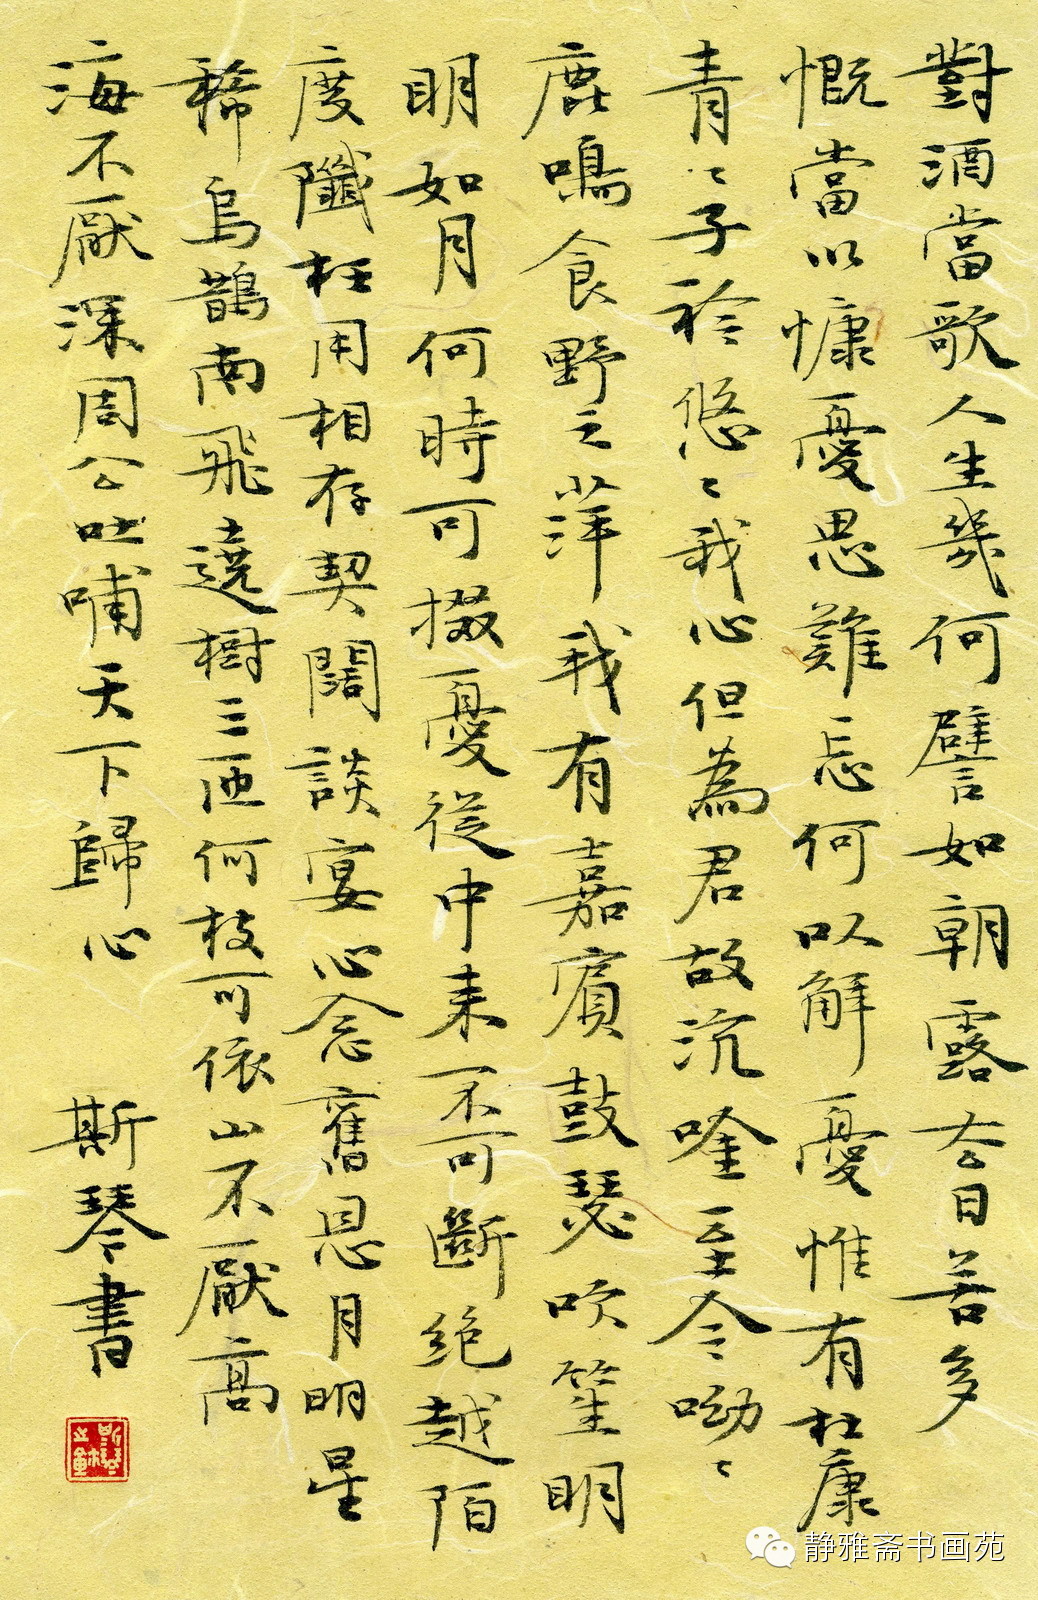 對酒當歌人生幾何譬如朝露去日苦多
慨當以慷憂思難忘何以解憂惟有杜康
青〻子衿悠〻我心但為君故沉唫至今呦〻
鹿鳴食野之萍我有嘉賓鼓瑟吹笙明
明如月何時可掇憂從中來不可斷絕越陌
度枉用相存契闊談宴心念舊恩月明星
稀烏鵲南飛遶樹三匝何枝可依山不厭高
海不厭深周公吐哺天下歸心 斯琴書
静雅斋书画苑